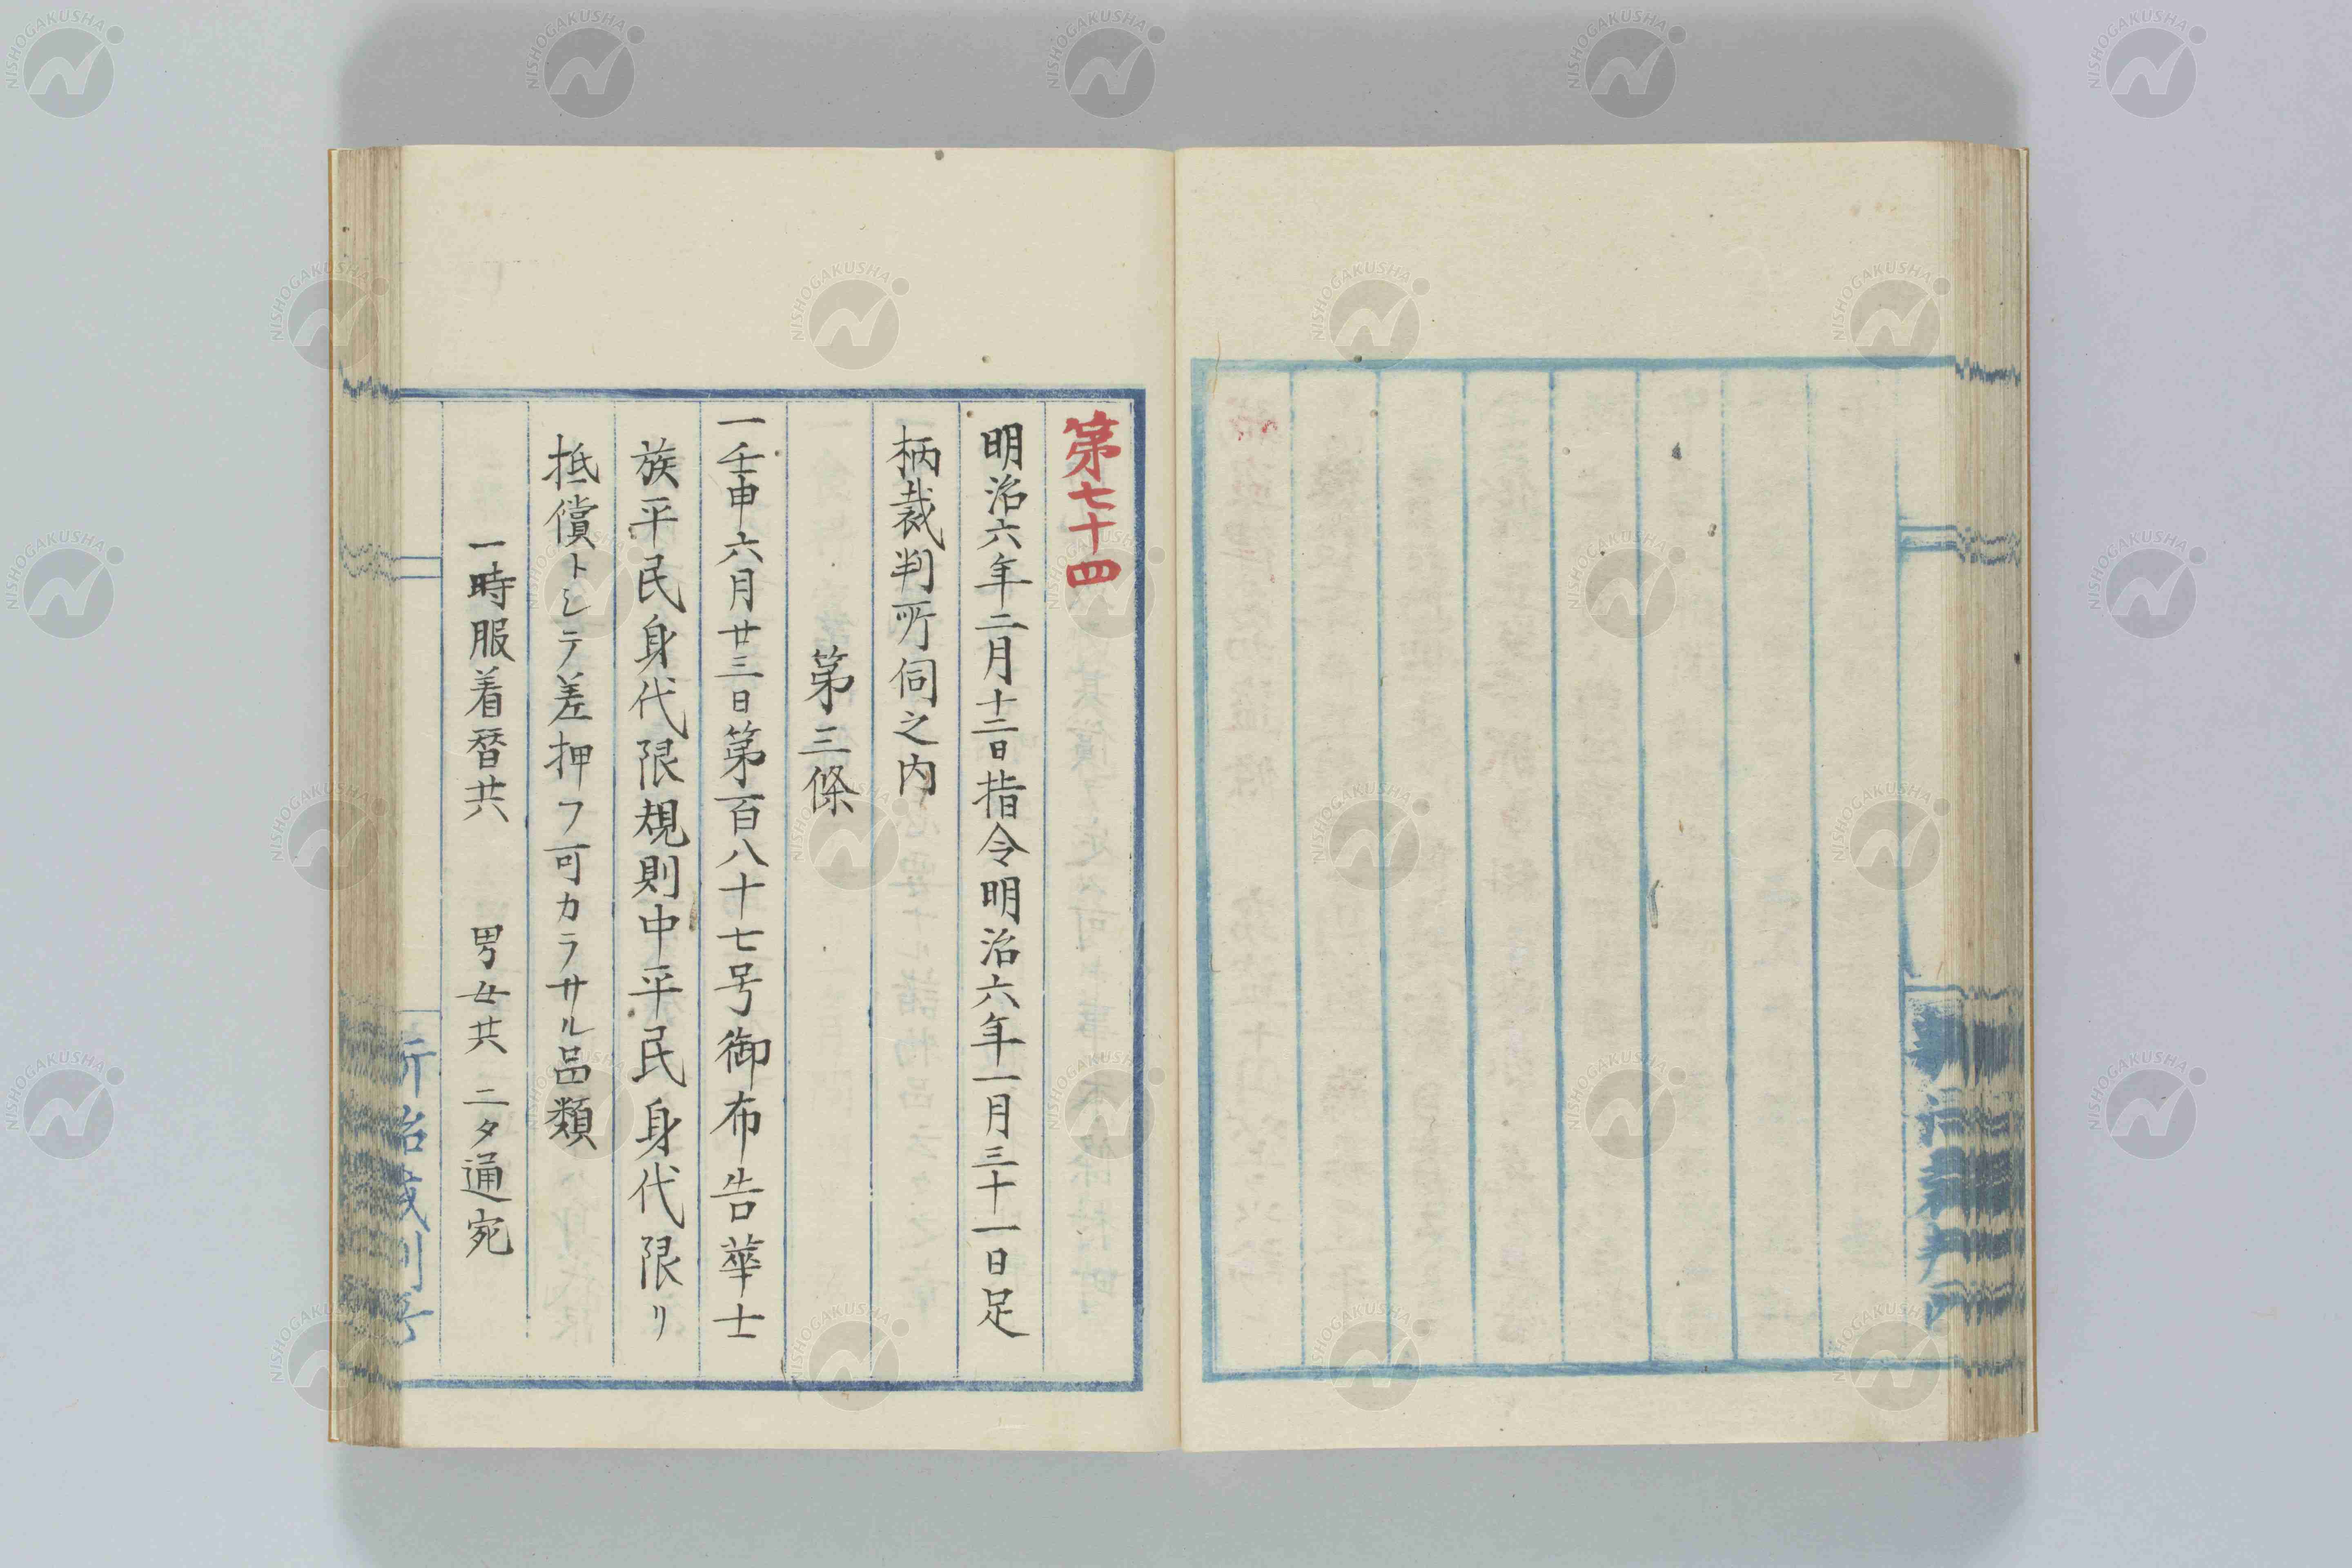 第七十四
明治六年二月十二日指令明治六年一月三十一日足
柄裁判所伺之内
第三條
一壬申六月廿三日第百八十七号御布告華士
族平民身代限規則中平民身代限リ
抵償トシテ差押フ可カラサル品類
一時服着替共 男女共 二タ通宛
NISHOGAKUSHA